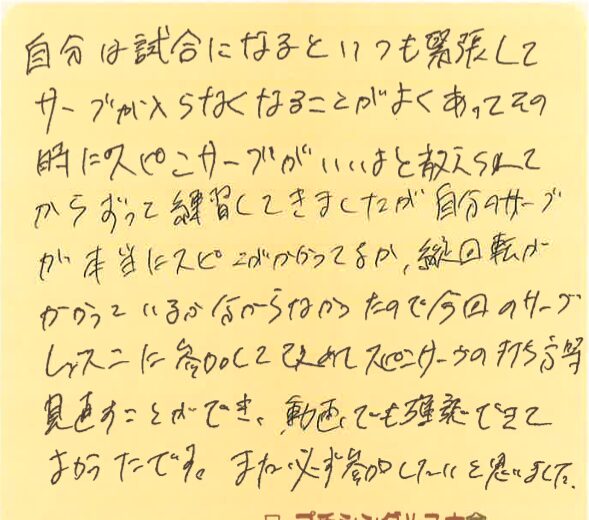 自分は試合になるといつも緊張して
サーブが入らなくなることがよくあってその
時にスピンサーブがいいよと教えられて
からずっと練習してきましたが自分のサーブ
が本当にスピンがかかってるか、縦回転が
かかっているか分からなかったので今回のサーブ
レッスンに参加して改めてスピンサーブの打ち方等
見直すことができ、動画でも確認できて
よかったです。また必ず参加したいと思いました。
プチシングルス大会